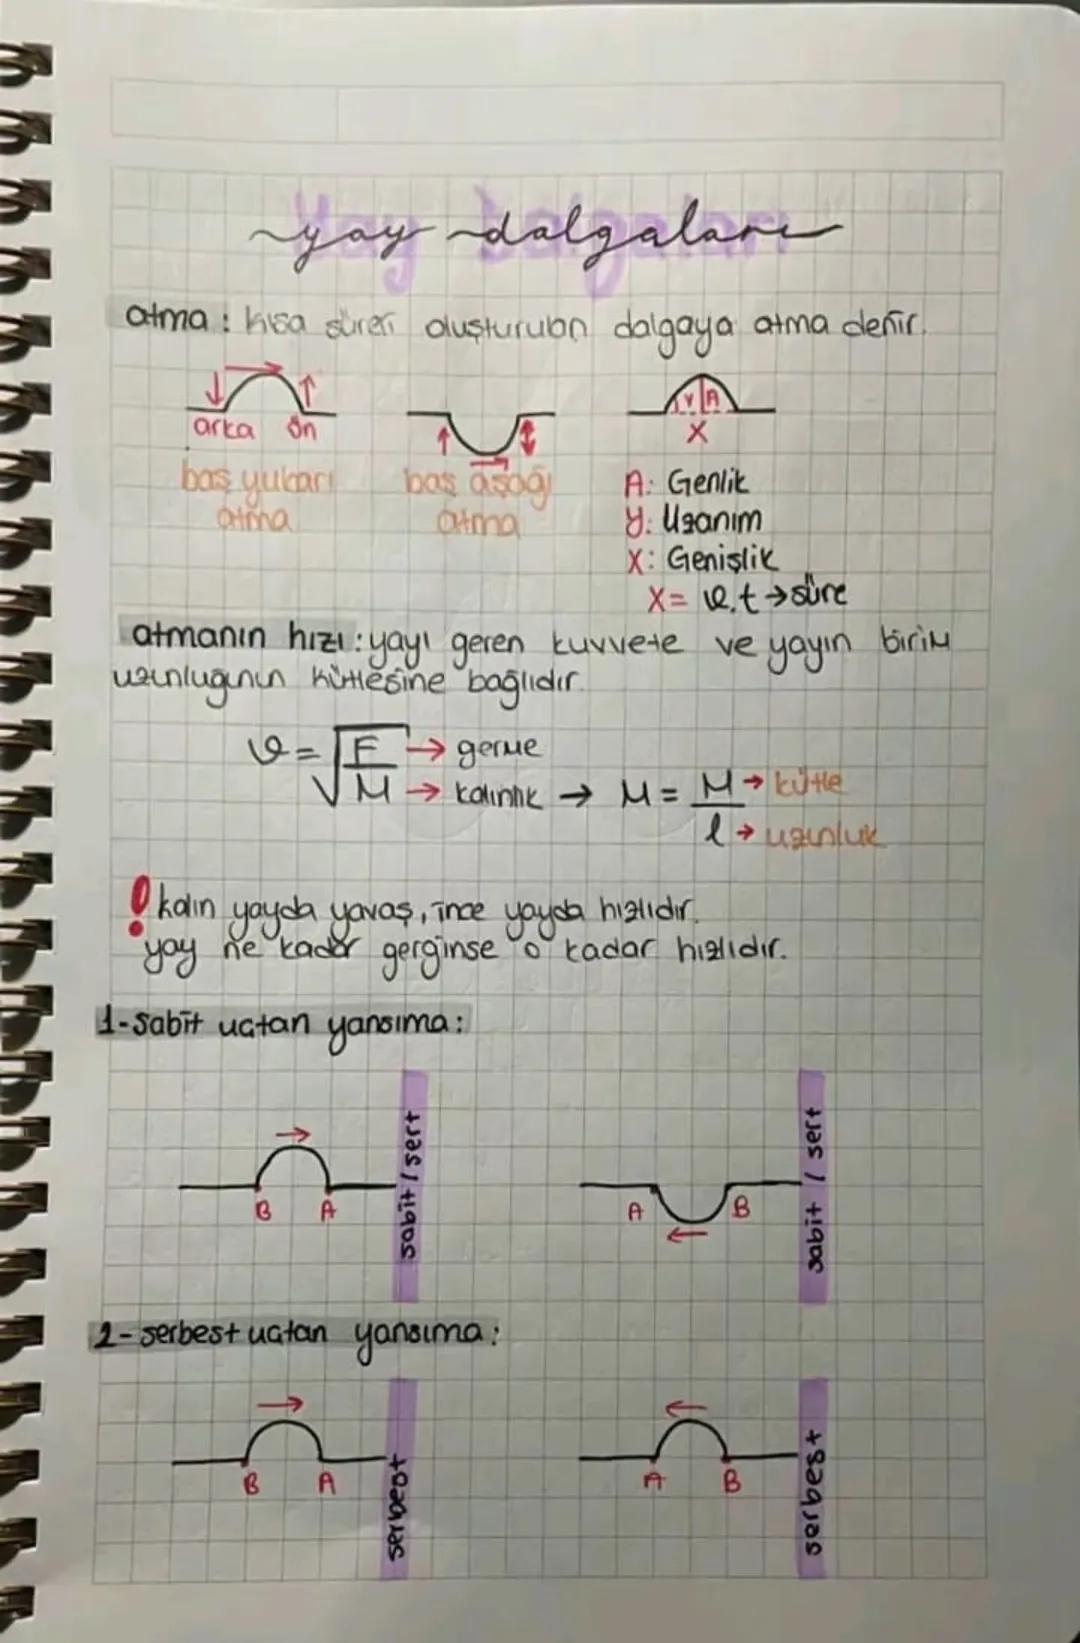 yay dalgaları
atma : kısa süreli oluşturulan dalgaya atma denir.
arka ön
y A
X
baş yukarı atma
baş aşağı atma
A: Genlik
y: Uzanım
X: Genişlik
X = v.t → süre
atmanın hızı : yayı geren kuvvete ve yayın birim
uzunluğunun kütlesine bağlıdır.
v = √F/M
F → germe
M → kalınlık → M = M/l
M → kütle
l → uzunluk
! kalın yayda yavaş, ince yayda hızlıdır.
yay ne kadar gerginse o kadar hızlıdır.
1-Sabit uçtan yansıma :
B A sabit / sert
A B sabit / sert
2- serbest uçtan yansıma :
B A serbest
A B serbest